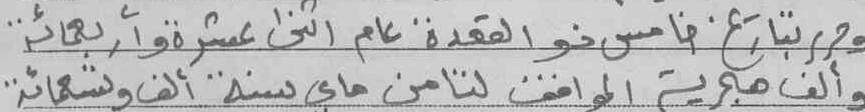 وحرر بتاريخ خامس ذو القعدة عام اثنى عشرة وأربعمائة
وألف هجرية الموافق لثامن ماي سنة ألف وتسعمائة